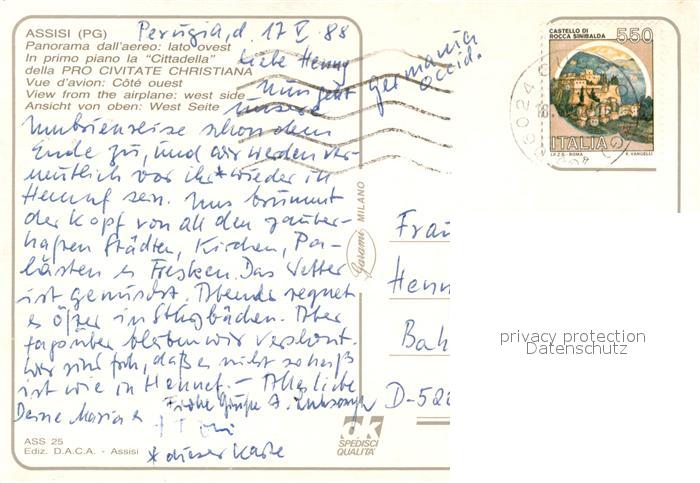 ASSISI (PG)
Panorama dall'aereo: lato ovest
In primo piano la "Cittadella"
della PRO CIVITATE CHRISTIANA
Vue d'avion: Côté ouest
View from the airplane: west side
Ansicht von oben: West Seite
Perugia, d. 17 V. 88
Liebe Henny
Nun geht
unsere
Umbrienreise schon dem
Ende zu, und wir werden ver-
mutlich vor ihr* wieder in
Hennef sein. Uns brummt
der Kopf von all den zauber-
haften Städten, Kirchen, Pa-
lästen u Fresken. Das Wetter
ist gemischt. Abends regnet
es öfter in Sturzbächen. Aber
tagsüber bleiben wir verschont.
Wir sind froh, daß es nicht so heiß
ist wie in Hennef. – Alles liebe
Deine Maria Frohe Grüße
* dieser Karte
germania
occid.
CASTELLO DI
ROCCA SINIBALDA
550
ITALIA
I.P.Z.S. - ROMA
E. VANGELLI
06024
Garami MILANO
Frau
Henn
Bah
D-520
privacy protection
Datenschutz
dk
SPEDISCI
QUALITA'
ASS 25
Ediz. D.A.C.A. - Assisi